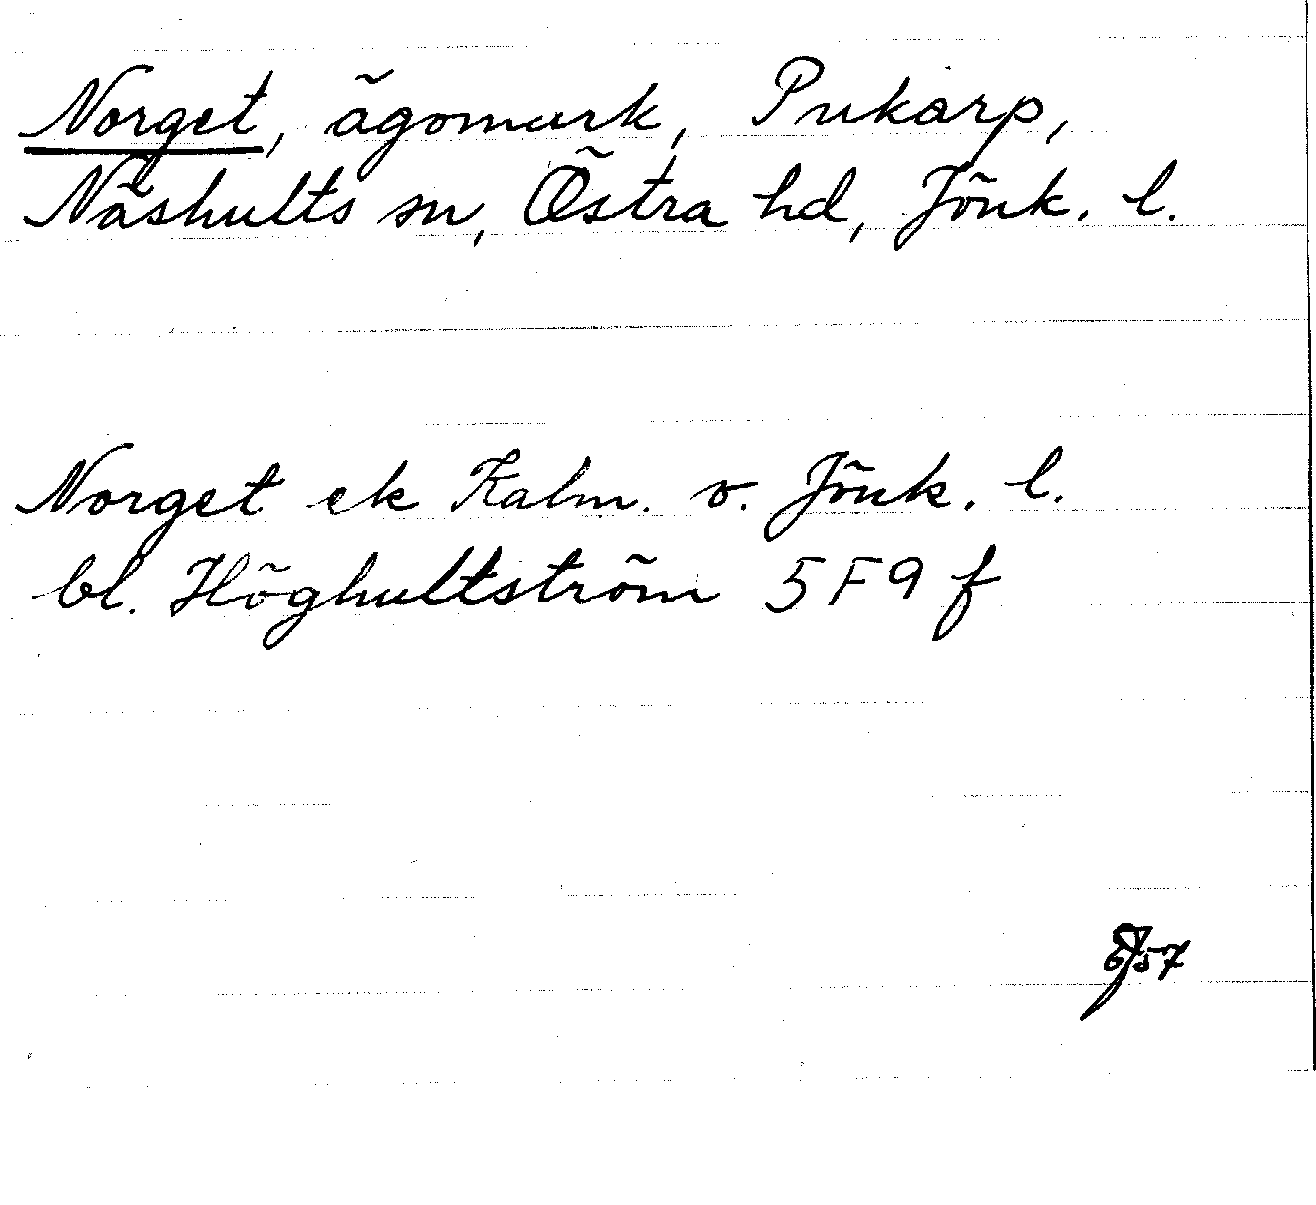 Norget, ägomark, Pukarp,
Näshults sn, Östra hd, Jönk. l.
Norget ek Kalm. o. Jönk. l.
bl. Höghultström 5F9 f